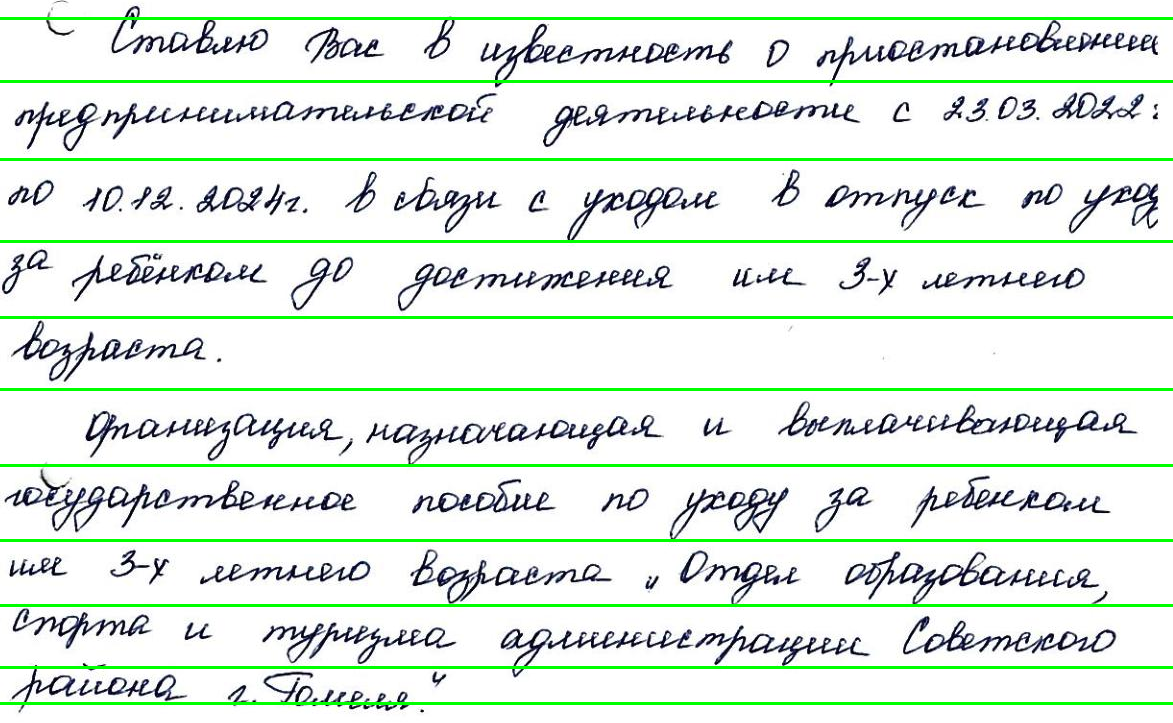 Ставлю Вас в известность о приостановлении
предпринимательской деятельности с 23.03.2022г
по 10.12.2024г. в связи с уходом в отпуск по уходу
за ребёнком до достижения им 3-х летнего
возраста.
Организация, назначающая и выплачивающая
государственное пособие по уходу за ребенком
им 3-х летнего возраста „Отдел образования,
спорта и туризма администрации Советского
района г. Гомеля."